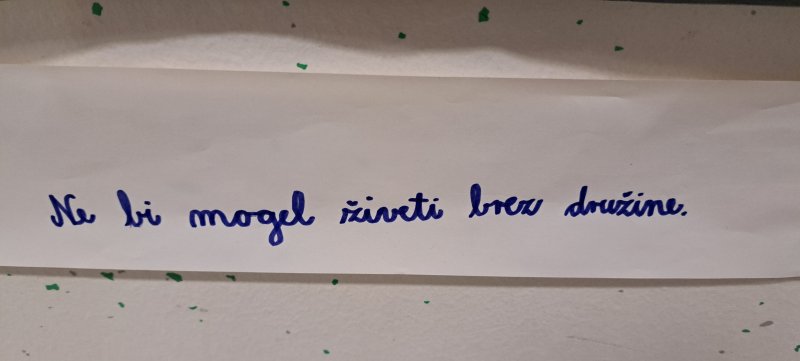 Ne bi mogel živeti brez družine.